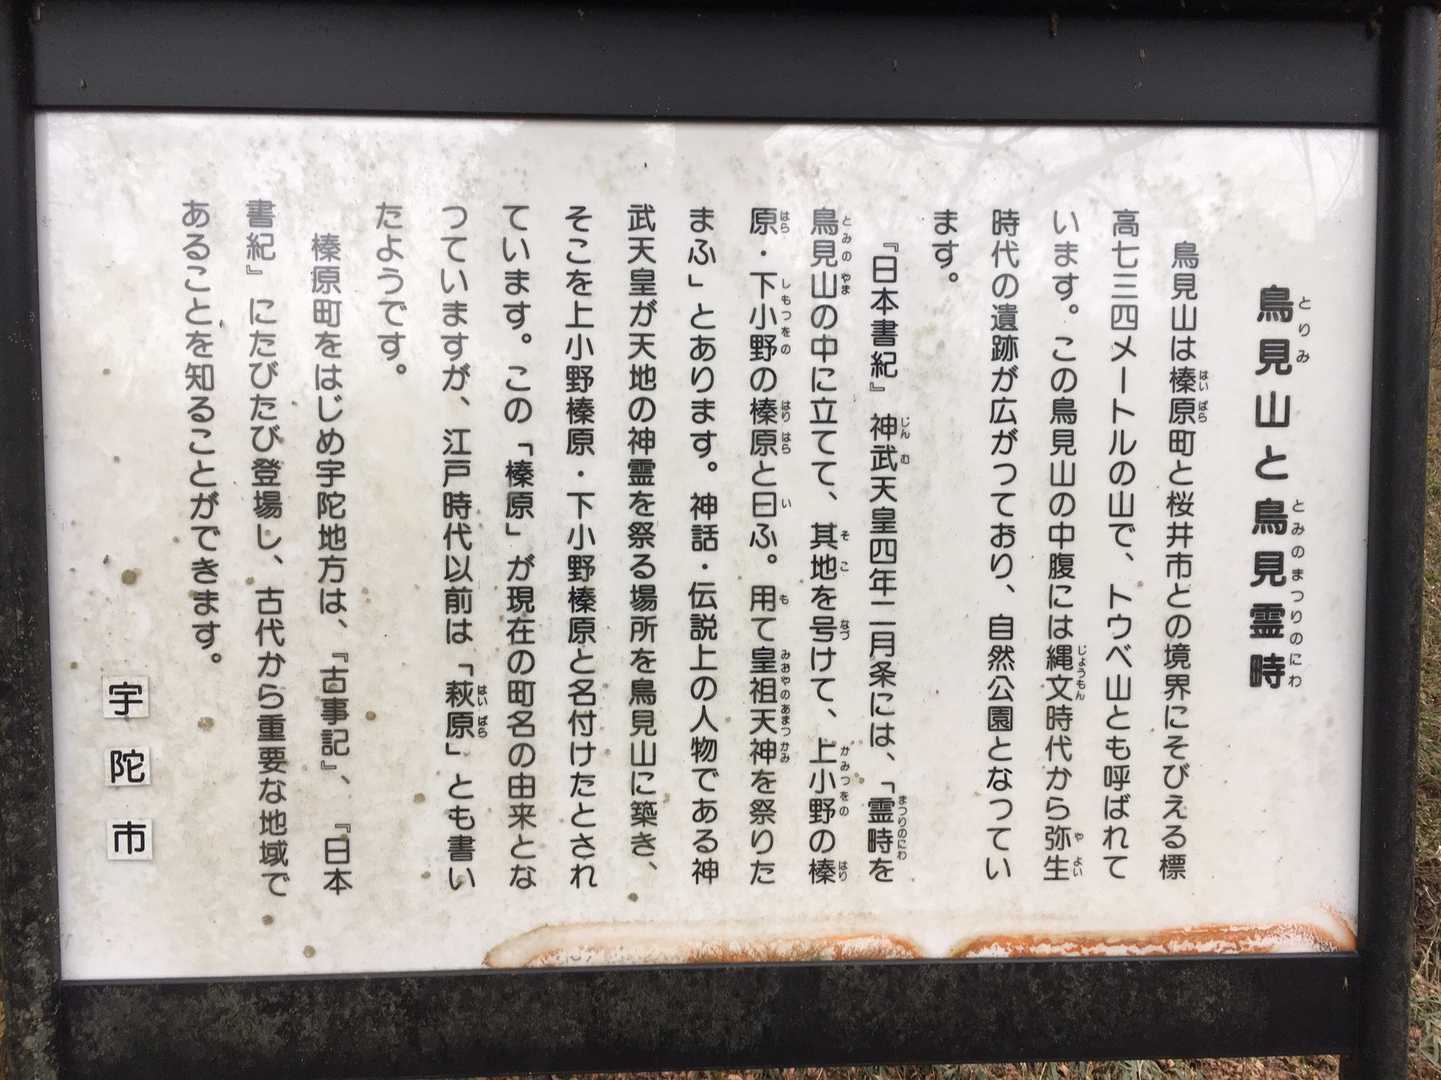 鳥見山と鳥見霊時
鳥見山は榛原町と桜井市との境界にそびえる標
高七三四メートルの山で、トウベ山とも呼ばれて
います。この鳥見山の中腹には縄文時代から弥生
時代の遺跡が広がっており、自然公園となってい
ます。
『日本書紀』神武天皇四年二月条には、「霊時を
鳥見山の中に立てて、其地を号けて、上小野の榛
原・下小野の榛原と曰ふ。用て皇祖天神を祭りた
まふ」とあります。神話・伝説上の人物である神
武天皇が天地の神霊を祭る場所を鳥見山に築き、
そこを上小野榛原・下小野榛原と名付けたとされ
ています。この「榛原」が現在の町名の由来とな
っていますが、江戸時代以前は「萩原」とも書い
たようです。
榛原町をはじめ宇陀地方は、『古事記』、『日本
書紀』にたびたび登場し、古代から重要な地域で
あることを知ることができます。
宇陀市